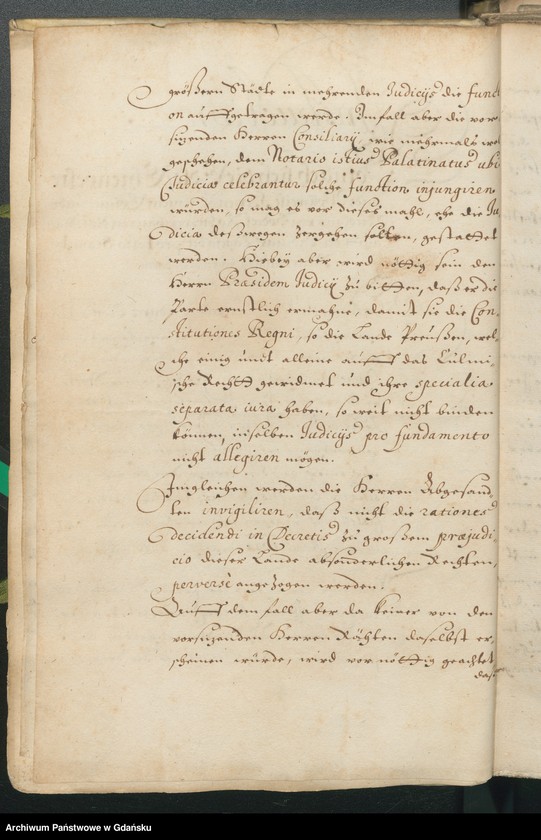 größern Städte in mehrenden Judicijs die functi
on auffgetragen werde. Im fall aber die vor
sitzenden Herren Consiliarij, wie mehrmals
geschehen, dem Notario istius Palatinatus ubi
Judicia celebrantur solche function injungiren
würden, so mag es vor dieses mahl, ehe die Ju
dicia deswegen zergehen solten, gestattet
werden. Hiebey aber wird nöttig sein den
Herrn Præsidem Judicij zu bitten, daß er die
Parte ernstlich ermahne, damit sie die Con
stitutiones Regni, so die Lande Preußen, wel
che einig und alleine auff das Culmi
sche Recht gewidmet und ihre specialia
separata iura haben, so weit nicht binden
können, in selben Judicijs pro fundamento
nicht allegiren mögen.
Imgleichen werden die Herren Abgesand
ten invigiliren, daß nicht die rationes
decidendi in Decretis zu großem præjudi
cio dieser Lande absonderlichen Rechten,
perversè angezogen werden.
Auff dem fall aber da keiner von den
vorsitzenden Herren Rähten daselbst er
scheinen würde, wird vor nöttig geachtet
das
Archiwum Państwowe w Gdańsku